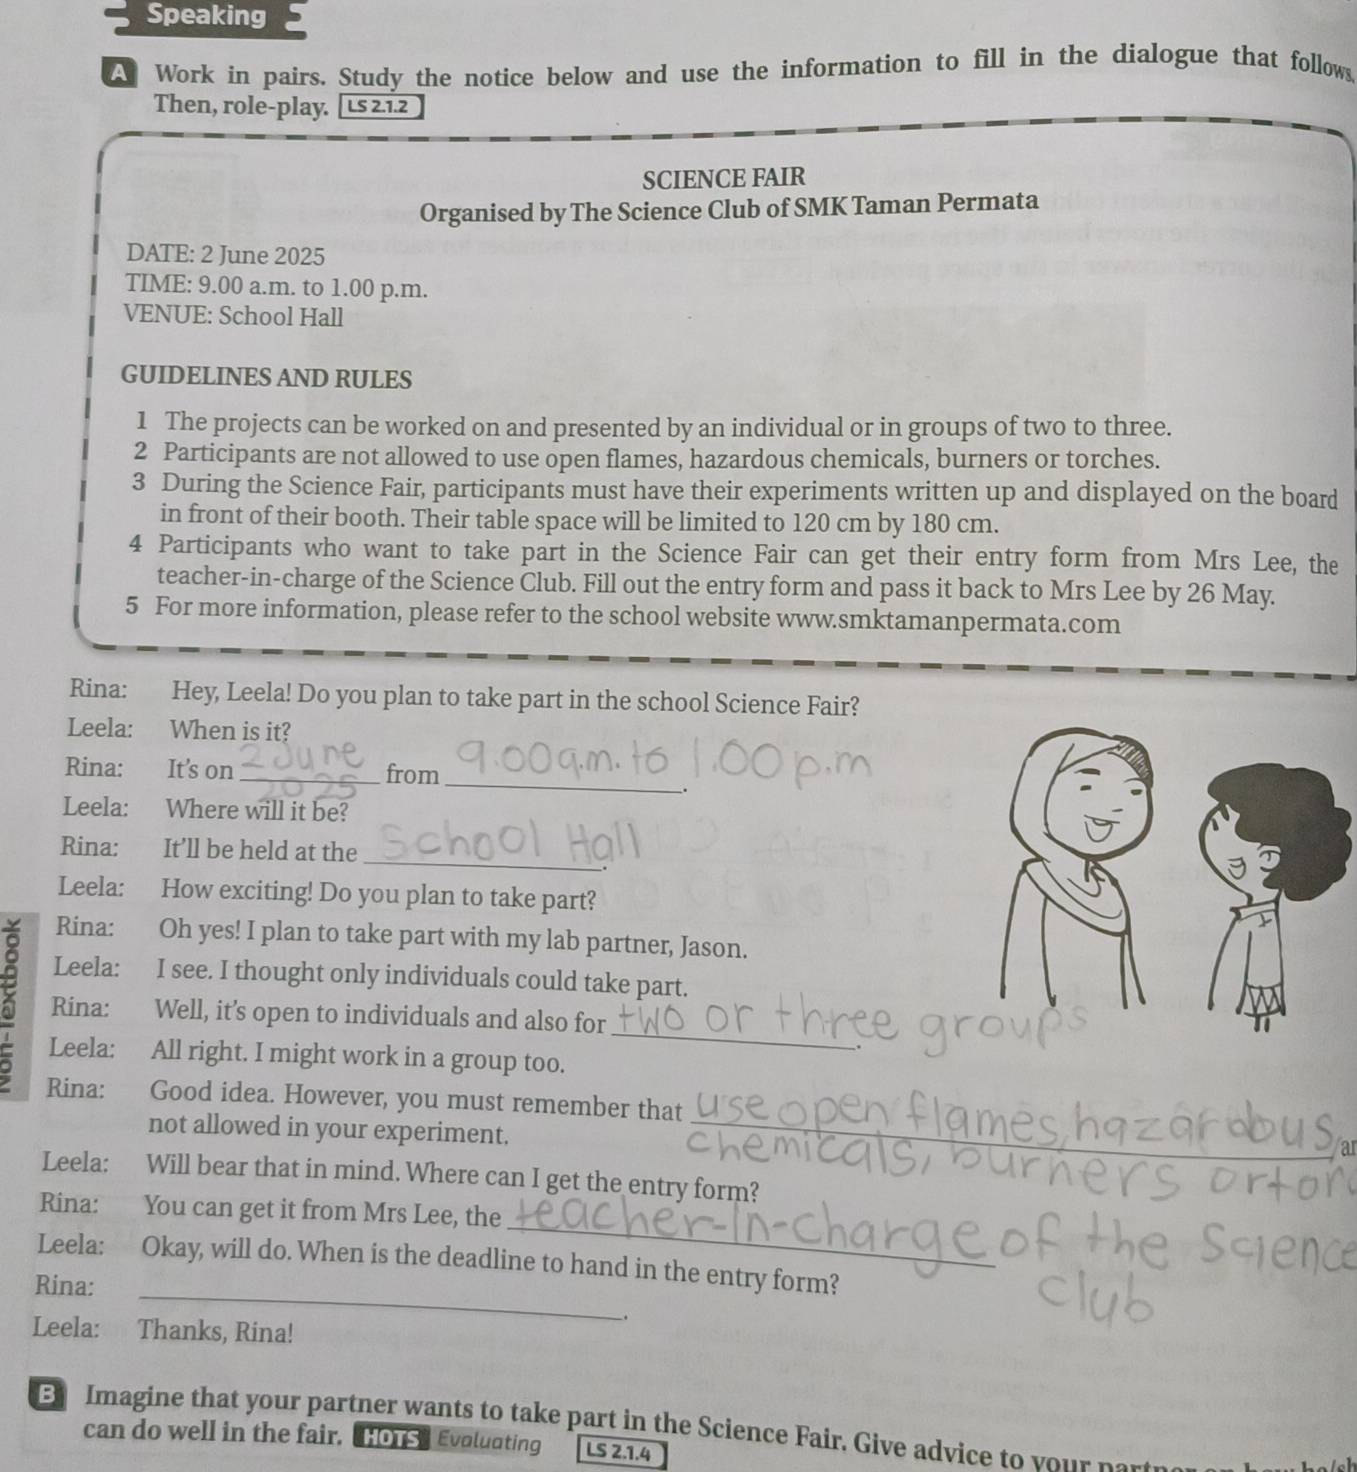 Speaking
A Work in pairs. Study the notice below and use the information to fill in the dialogue that follows.
Then, role-play. LS 2.1.2
SCIENCE FAIR
Organised by The Science Club of SMK Taman Permata
DATE: 2 June 2025
TIME: 9.00 a.m. to 1.00 p.m.
VENUE: School Hall
GUIDELINES AND RULES
1 The projects can be worked on and presented by an individual or in groups of two to three.
2 Participants are not allowed to use open flames, hazardous chemicals, burners or torches.
3 During the Science Fair, participants must have their experiments written up and displayed on the board
in front of their booth. Their table space will be limited to 120 cm by 180 cm.
4 Participants who want to take part in the Science Fair can get their entry form from Mrs Lee, the
teacher-in-charge of the Science Club. Fill out the entry form and pass it back to Mrs Lee by 26 May.
5 For more information, please refer to the school website www.smktamanpermata.com
Rina: Hey, Leela! Do you plan to take part in the school Science Fair?
Leela: When is it?
Rina: It's on 2 June 2025 from 9.00a.m. to 1.00p.m.
Leela: Where will it be?
Rina: It'll be held at the School Hall.
Leela: How exciting! Do you plan to take part?
Rina: Oh yes! I plan to take part with my lab partner, Jason.
Leela: I see. I thought only individuals could take part.
Rina: Well, it's open to individuals and also for two or three groups.
Leela: All right. I might work in a group too.
Rina: Good idea. However, you must remember that use open flames, hazardous
chemicals, burners or
not allowed in your experiment.
Leela: Will bear that in mind. Where can I get the entry form?
Rina: You can get it from Mrs Lee, the teacher-in-charge of the Science
club
Leela: Okay, will do. When is the deadline to hand in the entry form?
Rina: .
Leela: Thanks, Rina!
B Imagine that your partner wants to take part in the Science Fair. Give advice to your
can do well in the fair. HOTS Evaluating LS 2.1.4
Non-Textbook